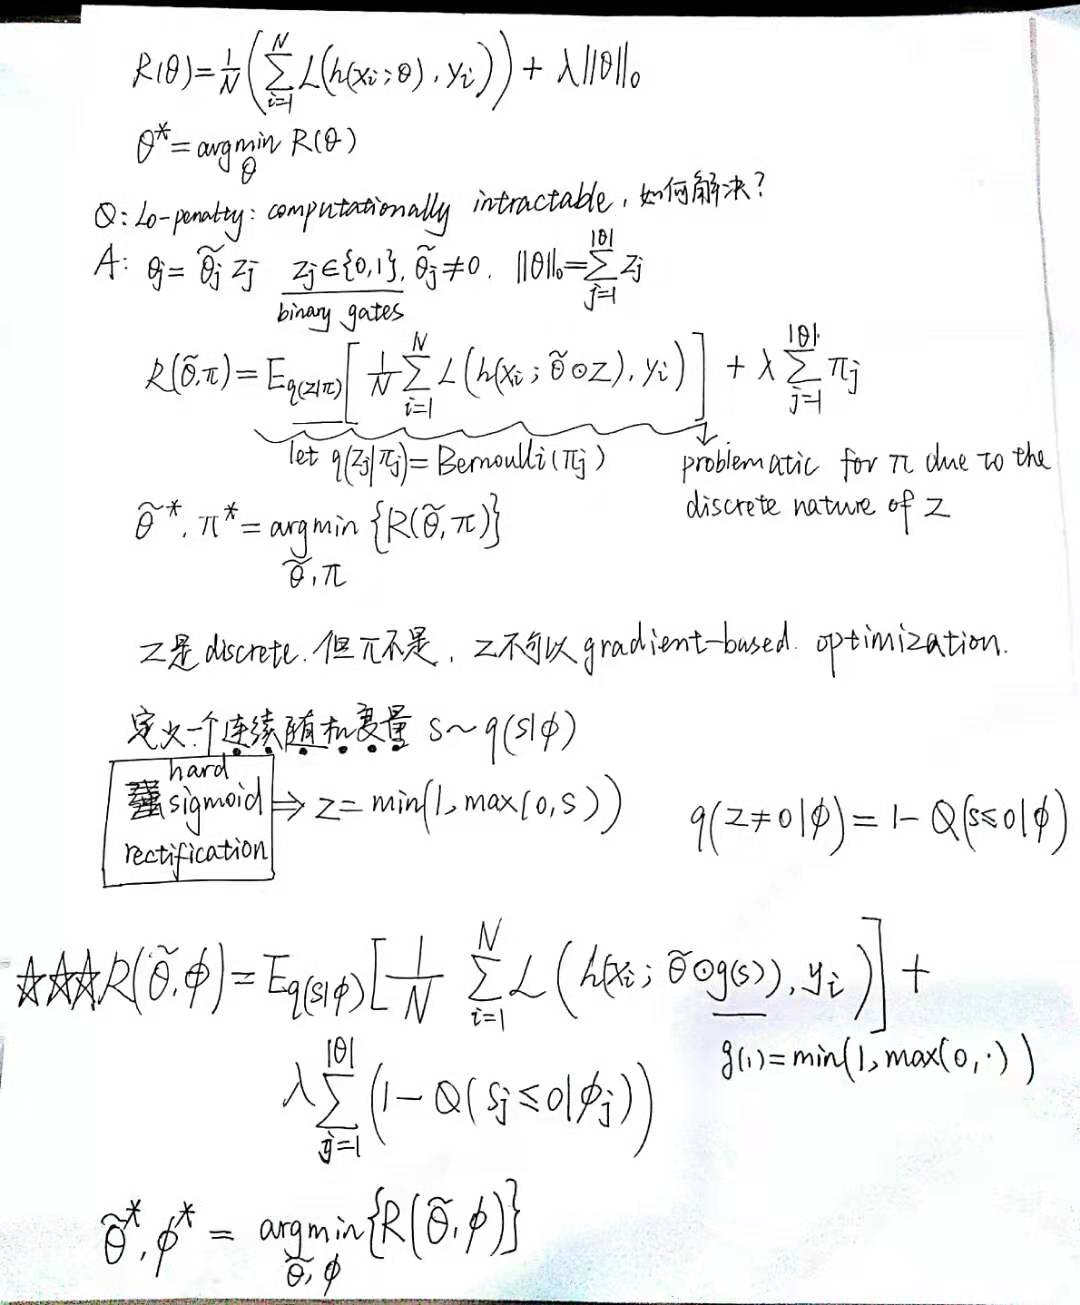 R(θ)=1/N(∑_{i=1}^{N} L(h(xi;θ), yi))+λ||θ||₀
θ*=argmin_θ R(θ)
Q: L0-penalty: computationally intractable, 如何解决?
A: θj=θ̃j zj zj∈{0,1}, θ̃j≠0. ||θ||₀=∑_{j=1}^{|θ|} zj
binary gates
R(θ̃,π)=E_{q(z|π)}[1/N ∑_{i=1}^{N} L(h(xi;θ̃⊙z), yi)]+λ∑_{j=1}^{|θ|} πj
let q(zj|πj)=Bernoulli(πj)
problematic for π due to the
discrete nature of z
θ̃*, π*=argmin_{θ̃,π}{R(θ̃,π)}
z是discrete, 但π不是, z不可以gradient-based optimization.
定义一个连续随机变量 s~q(s|ϕ)
hard
sigmoid
rectification
⇒ z=min(1,max(0,s)) q(z≠0|ϕ)=1-Q(s≤0|ϕ)
☆☆☆R(θ̃,ϕ)=E_{q(s|ϕ)}[1/N ∑_{i=1}^{N} L(h(xi;θ̃⊙g(s)), yi)]+
λ∑_{j=1}^{|θ|}(1-Q(sj≤0|ϕj))
g(·)=min(1,max(0,·))
θ̃*, ϕ*=argmin_{θ̃,ϕ}{R(θ̃,ϕ)}